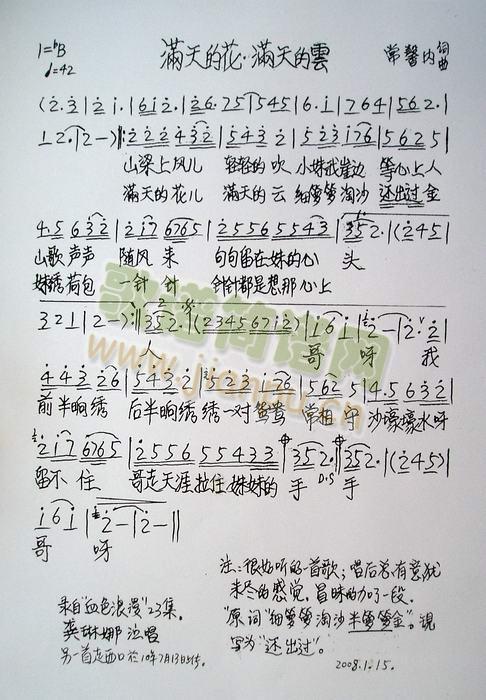 1=♭B
♩=42
滿天的花·滿天的雲
常馨内 词曲
(2·3|2 1·|6 1 2·|2 6·7 5|5 4 5|6·1|7 6 4|5 6 2·|
1 2·|2 -)‖:2 2 2 4 3 2|5 4 3 2|5 2 3 1 7 6|5 6 2 5|
山梁上风儿 轻轻的吹 小妹我崖边 等心上人
滿天的花儿 滿天的云 细箩箩淘沙 还出过金
4·5 6 3 2|2 1 7 6 7 6 5|2 5 5 6 5 5 4 3|3 5 2·|(2 4 5|
山歌声声 随风来 句句留在妹的心头
妹绣荷包 一针针 针针都是想那心上
3 2 1|2 -):‖3 5 2·|(2 3 4 5 6 7 1 2)|1 6 1|2 -|2· 2|
人 哥 呀 我
4 4 3 2 6|5 4 3 2|1 2 3 1 7 6|5 6 2 5|4·5 6 3 2|
前半晌绣 后半晌绣 绣一对鸳鸯 常相守 沙壕壕水呀
2 1 7 6 7 6 5|2 5 5 6 5 5 4 3 3|3 5 2·‖3 5 2·|(2 4 5)|
留不住 哥走天涯拉住妹妹的手 D.S 手
1 6 1|2 -|2 -‖
哥 呀
注:很好听的一首歌;唱后总有意犹
未尽的感觉,冒昧的加了一段.
"原词"细箩箩淘沙半箩箩金"。现
写为"还出过"。
2008.1.15.
录自"血色浪漫"23集.
龚琳娜 演唱
另一首走西口於10年7月13日上传。
歌谱简谱网
www.jianpu.cn